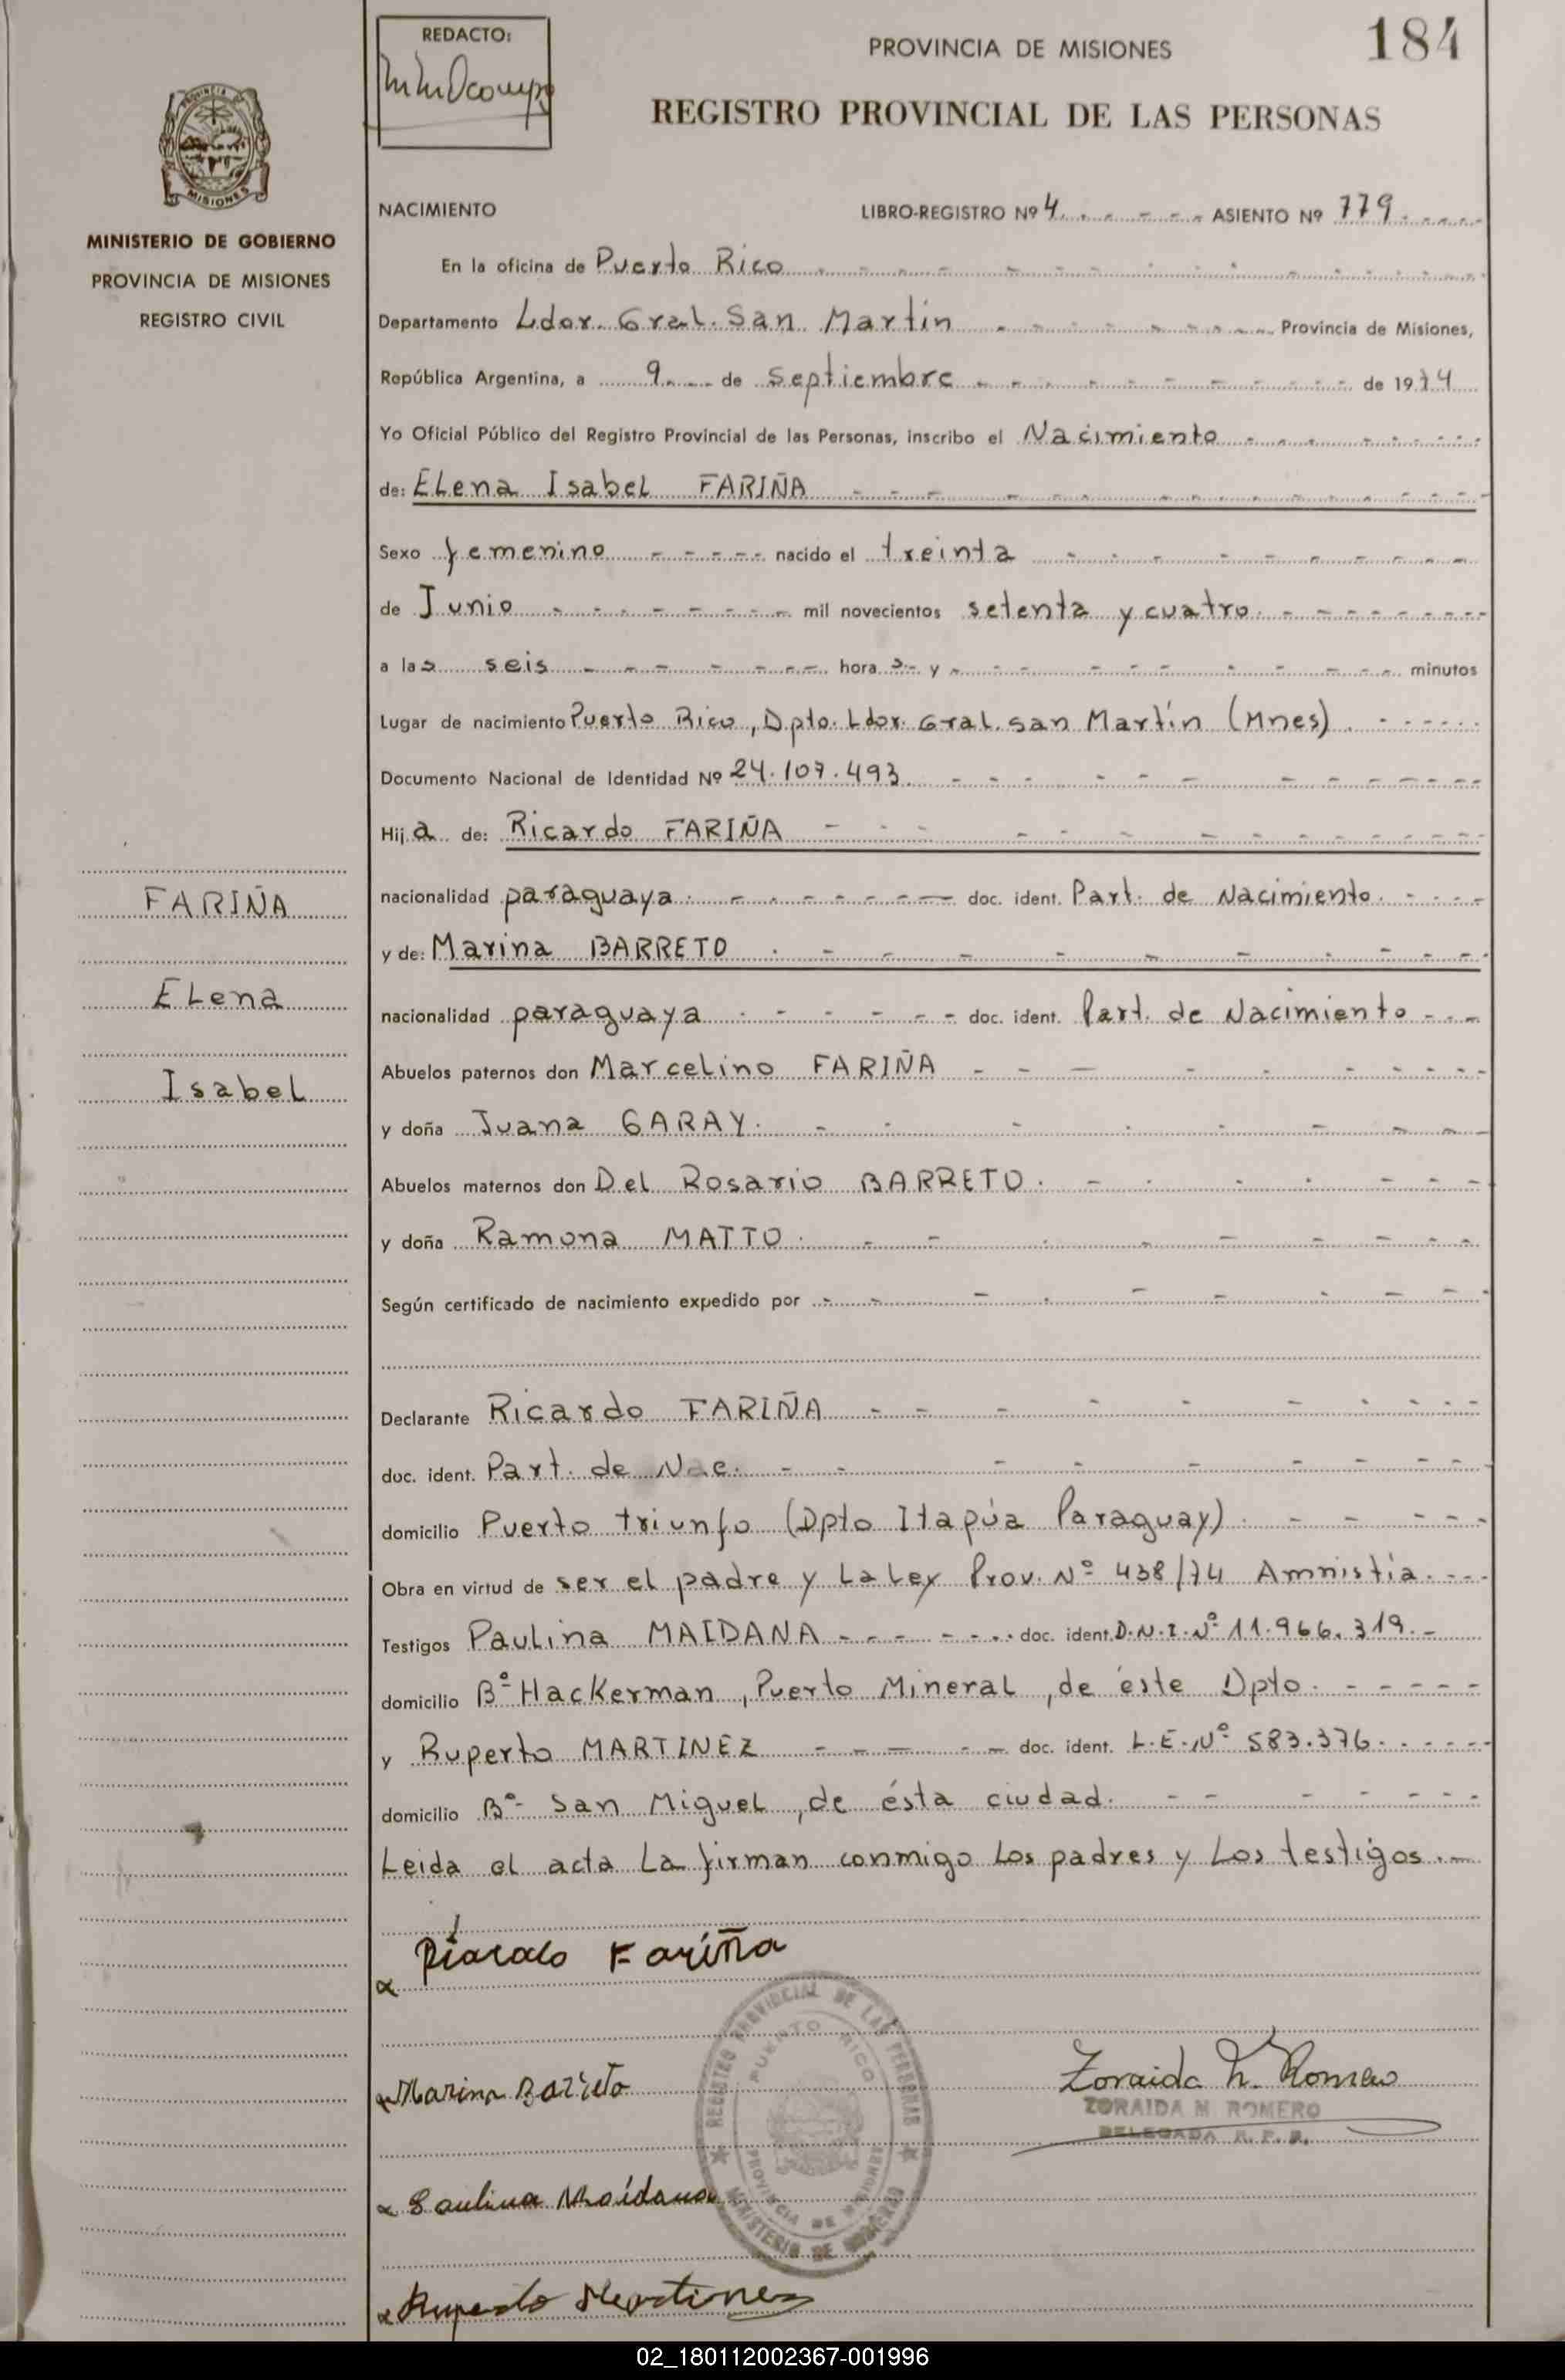 184
REDACTO:
PROVINCIA DE MISIONES
REGISTRO PROVINCIAL DE LAS PERSONAS
PROVINCIA DE
MISIONES
MINISTERIO DE GOBIERNO
PROVINCIA DE MISIONES
REGISTRO CIVIL
NACIMIENTO LIBRO-REGISTRO Nº 4 ASIENTO Nº 779
En la oficina de Puerto Rico
Departamento Ldor. Gral. San Martín Provincia de Misiones,
República Argentina, a 9 de septiembre de 1974
Yo Oficial Público del Registro Provincial de las Personas, inscribo el Nacimiento
de: Elena Isabel FARIÑA
Sexo femenino nacido el treinta
de Junio mil novecientos setenta y cuatro.
a las seis horas y minutos
Lugar de nacimiento Puerto Rico, Dpto. Ldor. Gral. San Martín (Mnes).
Documento Nacional de Identidad Nº 24.107.493.
Hija de: Ricardo FARIÑA
nacionalidad paraguaya. doc. ident. Part. de Nacimiento.
y de: Marina BARRETO
nacionalidad paraguaya doc. ident. Part. de Nacimiento
Abuelos paternos don Marcelino FARIÑA
y doña Juana GARAY.
Abuelos maternos don Del Rosario BARRETO.
y doña Ramona MATTO.
Según certificado de nacimiento expedido por
Declarante Ricardo FARIÑA
doc. ident. Part. de Nac.
domicilio Puerto triunfo (Dpto Itapúa Paraguay).
Obra en virtud de ser el padre y La Ley Prov. Nº 438/74 Amnistía.
Testigos Paulina MAIDANA doc. ident. D.N.I. Nº 11.966.319.
domicilio Bº Hackerman, Puerto Mineral, de éste Dpto.
y Ruperto MARTINEZ doc. ident. L.E. Nº 583.376.
domicilio Bº San Miguel, de ésta ciudad.
Leida el acta La firman conmigo Los padres y Los testigos.
FARIÑA
Elena
Isabel
Ricardo Fariña
Marina Barreto
Paulina Maidana
Ruperto Martinez
REGISTRO PROVINCIAL DE LAS PERSONAS
PUERTO RICO
PROVINCIA DE MISIONES
MINISTERIO DE GOBIERNO
Zoraida M. Romero
ZORAIDA M ROMERO
DELEGADA R. P. P.
02_180112002367-001996